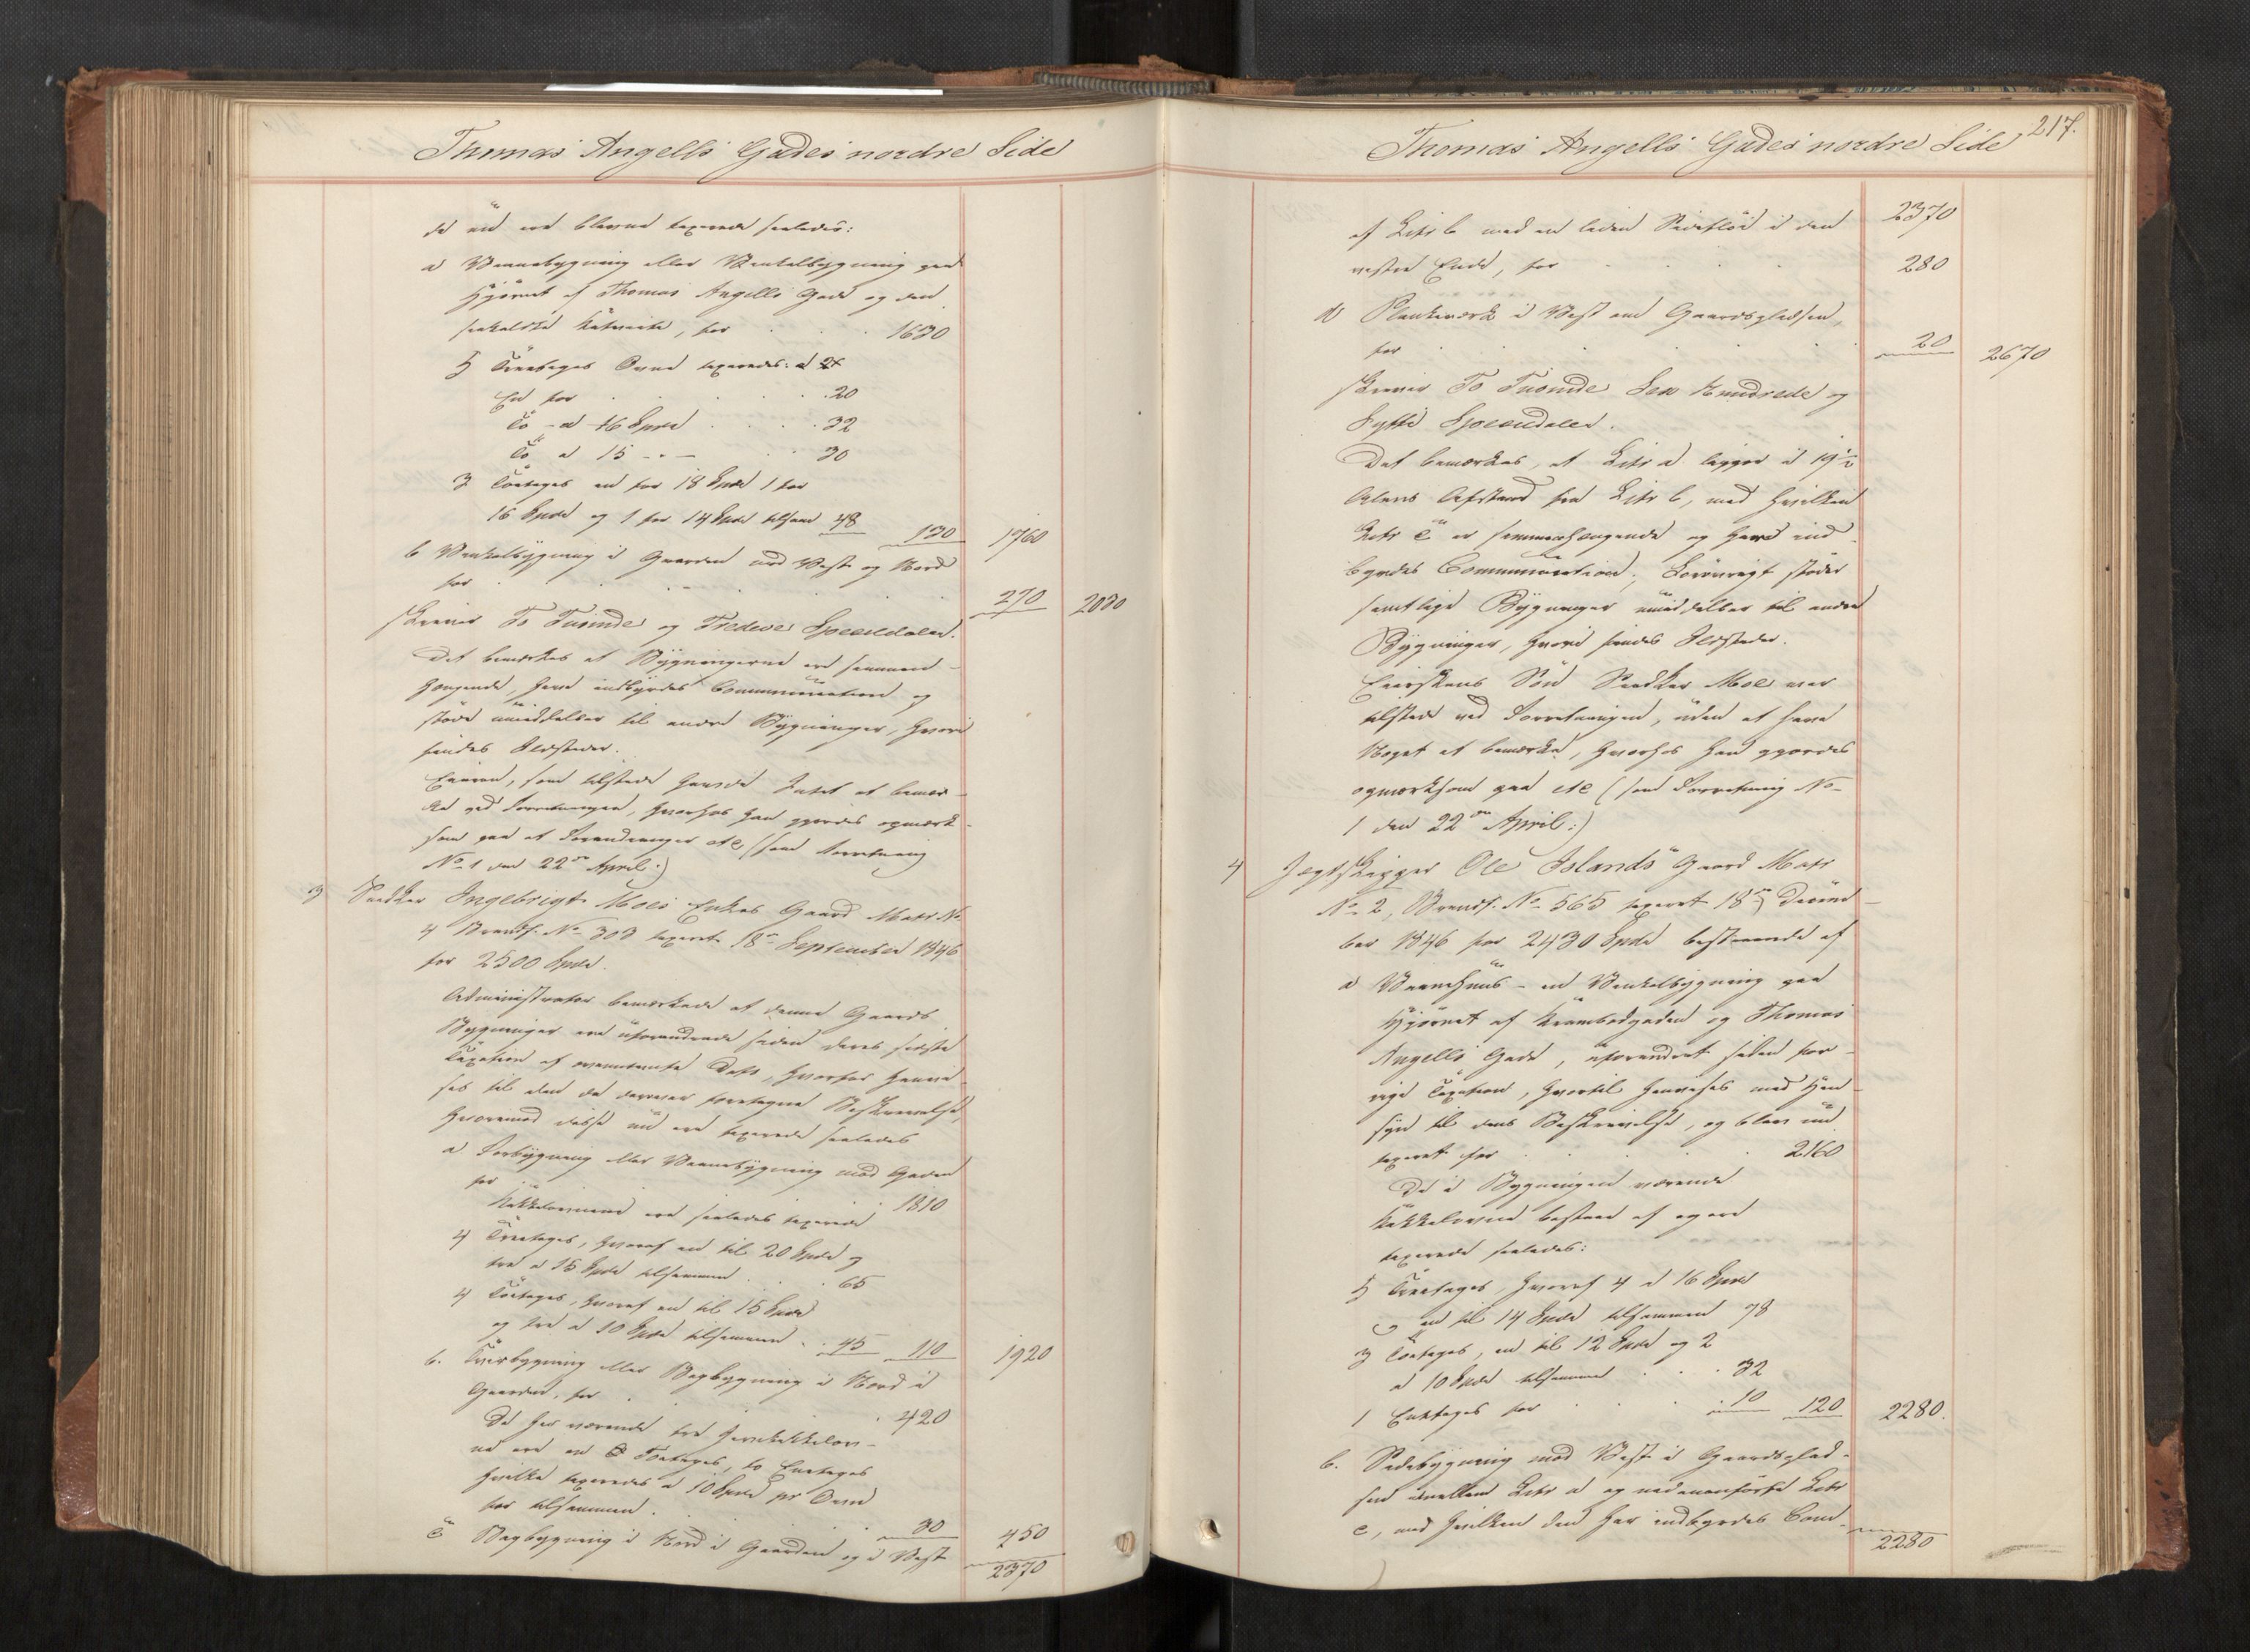 Thomas Angells Gades nordre Side
de nu ere blevne taxerede saaledes:
a Vaanebygning eller Vinkelbygning paa
Hjørnet af Thomas Angells Gade og den
saakaldte, for 1630
5 Treetages Ovne taxeredes: a
En for 20
To - a 16 Spd 32
To a 15 - " - 30
3 Toetages en for 18 Spd 1 for
16 Spd og 1 for 14 Spd tilsam 48 130 1760
b Vinkelbygning i Gaarden mod Vest og Nord
for 270 2030
skriver To Tusinde og Tredive Speciedaler.
Det bemærkes at Bygningerne ere sammen-
hængende, have indbyrdes Communication og
støde umiddelbar til andre Bygninger, hvori
findes Ildsteder.
Eieren, som tilstede havde Intet at bemær-
ke ved Forretningen, hvorhos han gjordes opmærk-
som paa at Forandringer etc (som Forretning
No 1 den 22de April:)
3 Snedker Ingebrigt Moes Enkes Gaard Matr No
4 Brandf. No 303 taxeret 18de September 1846
for 2500 Spd.
Administrator bemærkede at denne Gaards
Bygninger ere uforandrede siden deres sidste
Taxation af ovennævnte Dato, hvorfor henvi-
ses til den da derover foretagne Beskrivelse,
hvoremod disse nu ere taxerede saaledes
a Forbygning eller Vaanebygning mod Gaden
for 1810
Kakkelovnene ere saaledes taxerede
4 Treetages, hvoraf en til 20 Spd og
tre a 15 Spd tilsammen 65
4 Toetages, hvoraf en til 15 Spd
og tre a 10 Spd tilsammen 45 110 1920
b. Tverbygning eller Bagbygning i Nord i
Gaarden, for 420
De her værende tre Kakkelov-
ne ere en Toetages, to Enetages
hvilke taxeredes a 10 Spd pr Ovn
for tilsammen 30 450
c Bagbygning i Nord i Gaarden og i Vest
2370
217.
Thomas Angells Gades nordre Side
af Litr b med en liden Sidefløi i den 2370
vestre Ende, for 280
d Plankeværk i Vest om Gaardspladsen,
for 20 2670
skriver To Tusinde Sex Hundrede og
Sytti Speciedaler.
Det bemærkes, at Litr a ligger i 19 1/2
Alens Afstand fra Litr b, med hvilken
Litr c er sammenhængende og have ind-
byrdes Communication; Forøvrigt støder
samtlige Bygninger umiddelbar til andre
Bygninger, hvori findes Ildsteder.
Eierskens Søn Snedker Moe var
tilstede ved Forretningen, uden at have
Noget at bemærke, hvorhos han gjordes
opmærksom paa etc (som Forretning No
1 den 22de April:)
4 Jegtskipper Ole Islands Gaard Matr
No 2, Brandf. No 565 taxeret 18de Decem-
ber 1846 for 2430 Spd bestaaende af
a Vaanehuus - en Vinkelbygning paa
Hjørnet af Krambodgaden og Thomas
Angells Gade, uforandret siden for-
rige Taxation, hvortil henvises med Hen-
syn til dens Beskrivelse, og blev nu
taxeret for 2160
De i Bygningen værende
Kakkelovne bestaae af og ere
taxerede saaledes:
5 Treetages, hvoraf 4 a 16 Spd
og en til 14 Spd tilsammen 78
3 Toetages, en til 12 Spd og 2
a 10 Spd tilsammen 32
1 Enetages for 10 120 2280.
b. Sidebygning mod Vest i Gaardsplad-
sen imellem Litr a og nedenanførte Litr
c, med hvilken den har indbyrdes Com-
2280